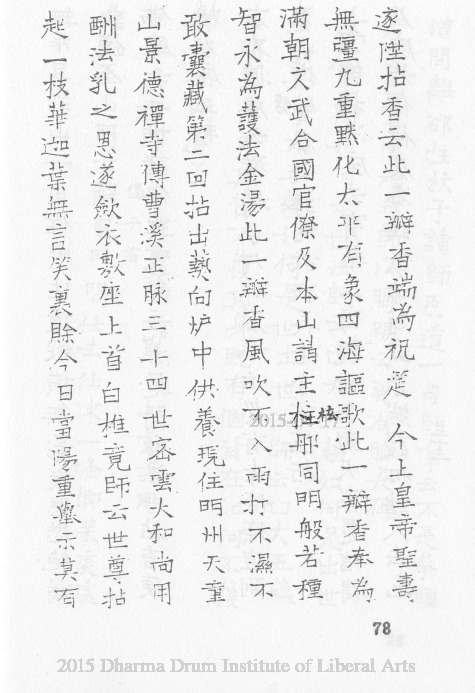 遂陞拈香云此一瓣香端為祝筵 今上皇帝聖壽
無彊九重黙化太平有象四海謳歌此一瓣香奉為
滿朝文武合國官僚及本山請主檀那同明般若種
智永為護法金湯此一瓣香風吹不入雨打不濕不
敢囊藏第二回拈出爇向炉中供養現住明州天童
山景德禪寺傳曹溪正脉三十四世密雲大和尚用
酬法乳之恩遂歛衣敷座上首白椎竟師云世尊拈
起一枝華迦葉無言笑裏賒今日當陽重擧示莫有
78
2015 Dharma Drum Institute of Liberal Arts